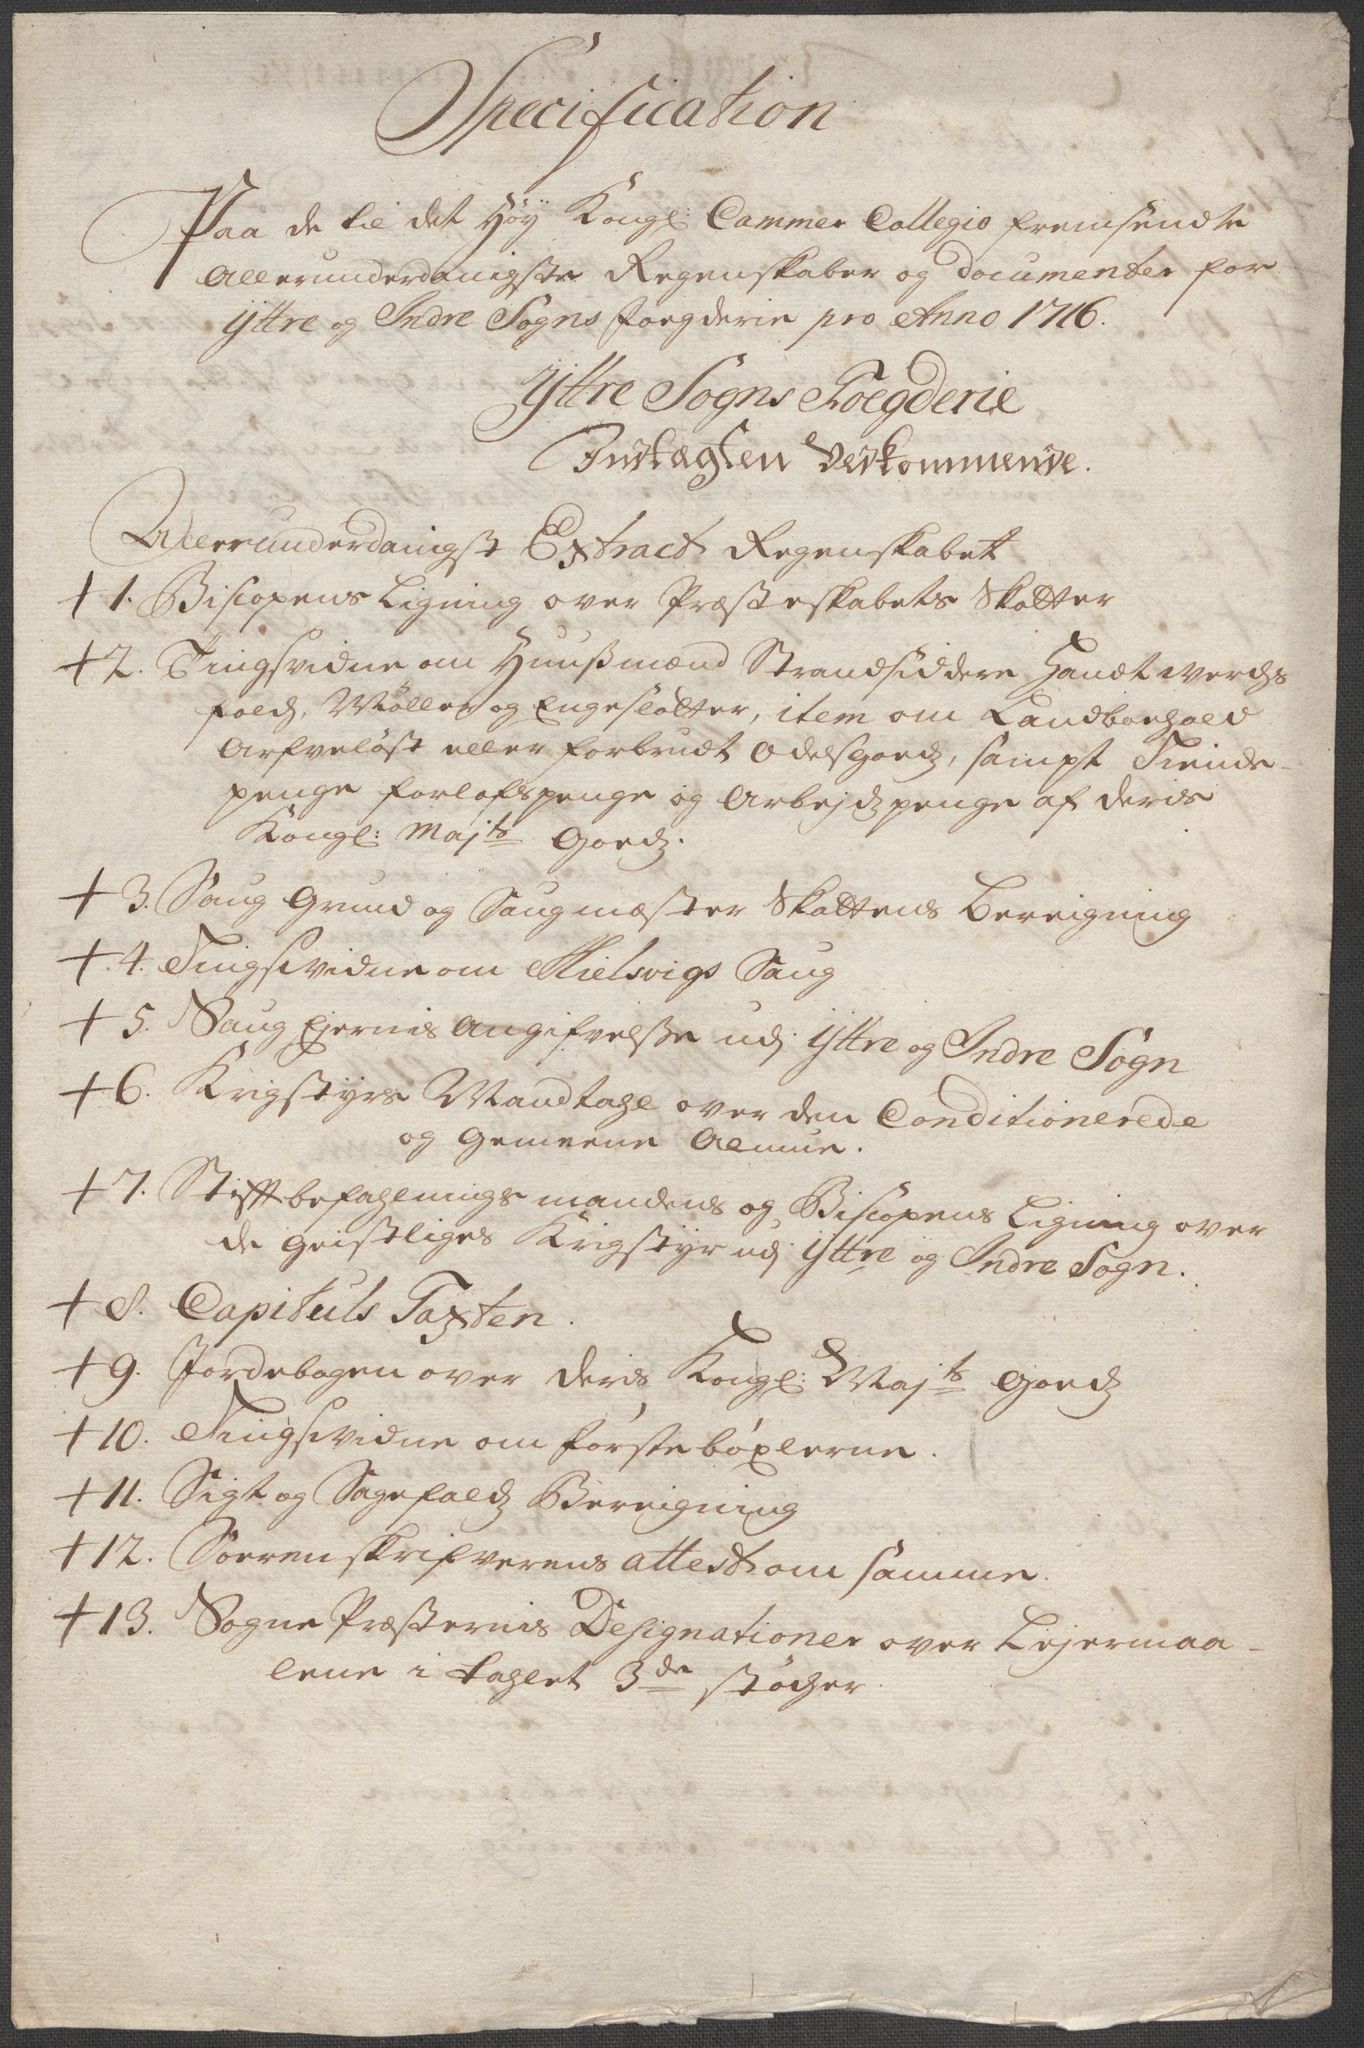 Specification
Paa de til det Høÿ Kongl: Cammer Collegio fremsendte
allerunderdanigste Regenskaber og documenter for
Ÿttre og Indre Sogns foegderie pro Anno 1716.
Ÿttre Sogns Foegderie
Indtægten vedkommende.
Allerunderdanigst Extract Regenskabet
+ 1. Biscopens Ligning over Præsteskabets Skatter
+ 2. Tingsvidne om Huusmænd Strandsiddere Handtwerchs
folch, Møller og Engeslotter, item om Landboehold
Arfveløst eller forbrudt Odelsgoedz, sampt Tiende-
penge forlofspenge og Arbejdzpenge af deris
Kongl: Majts Goedz.
+ 3. Saug Grund og Saugmæster Skattens Bereigning
+ 4. Tingsvidne om Skielsvigs Saug
+ 5. Saug Ejernis Angifvelsse udj Ÿttre og Indre Sogn
+ 6. Krigstÿrs Mandtahl over den Conditionerede
og Gemeene Almue.
+ 7. Stifftbefahlningsmandens og Biscopens Ligning over
de Geistliges Krigstÿr udj Ÿttre og Indre Sogn.
+ 8. Capituls Taxten.
+ 9. Jordebogen over deris Kongl: Majts Goedz
+ 10. Tingsvidne om førstebøxlerne.
+ 11. Sigt og Sagefaldz Bereigning
+ 12. Sorenskrifverens attest om samme.
+ 13. Sogne Præsternis Designationer over Lejermaa-
lene i tahlet 3de støcher